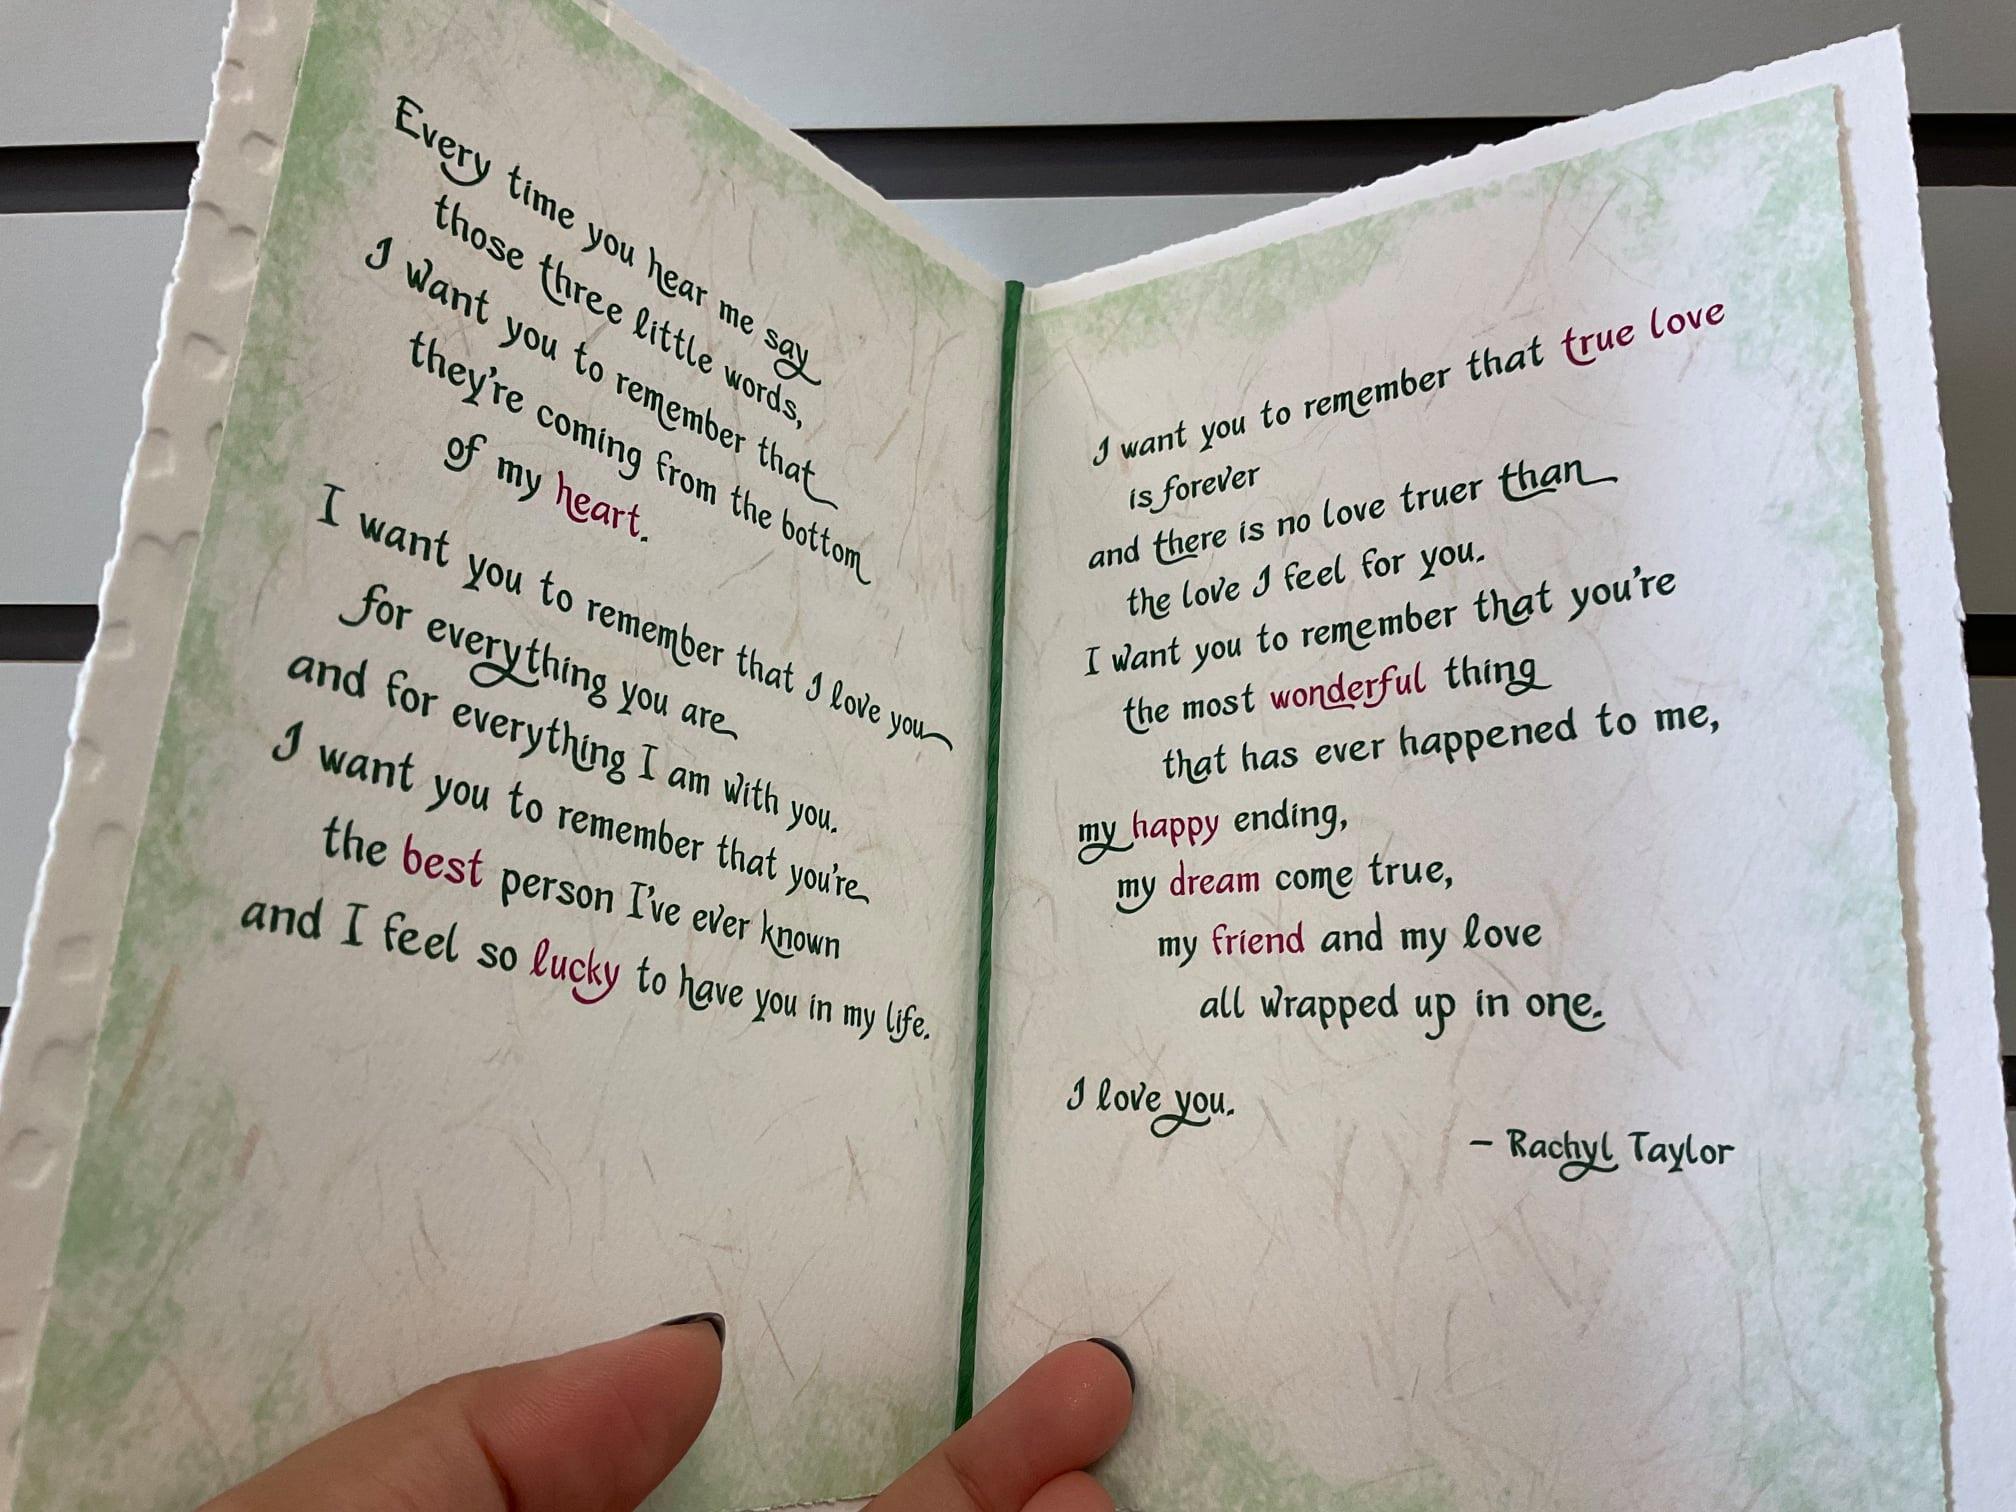 Every time you hear me say
those three little words,
I want you to remember that
they're coming from the bottom
of my heart.
I want you to remember that I love you
for everything you are
and for everything I am with you.
I want you to remember that you're
the best person I've ever known
and I feel so lucky to have you in my life.
I want you to remember that true love
is forever
and there is no love truer than
the love I feel for you.
I want you to remember that you're
the most wonderful thing
that has ever happened to me,
my happy ending,
my dream come true,
my friend and my love
all wrapped up in one.
I love you.
– Rachyl Taylor